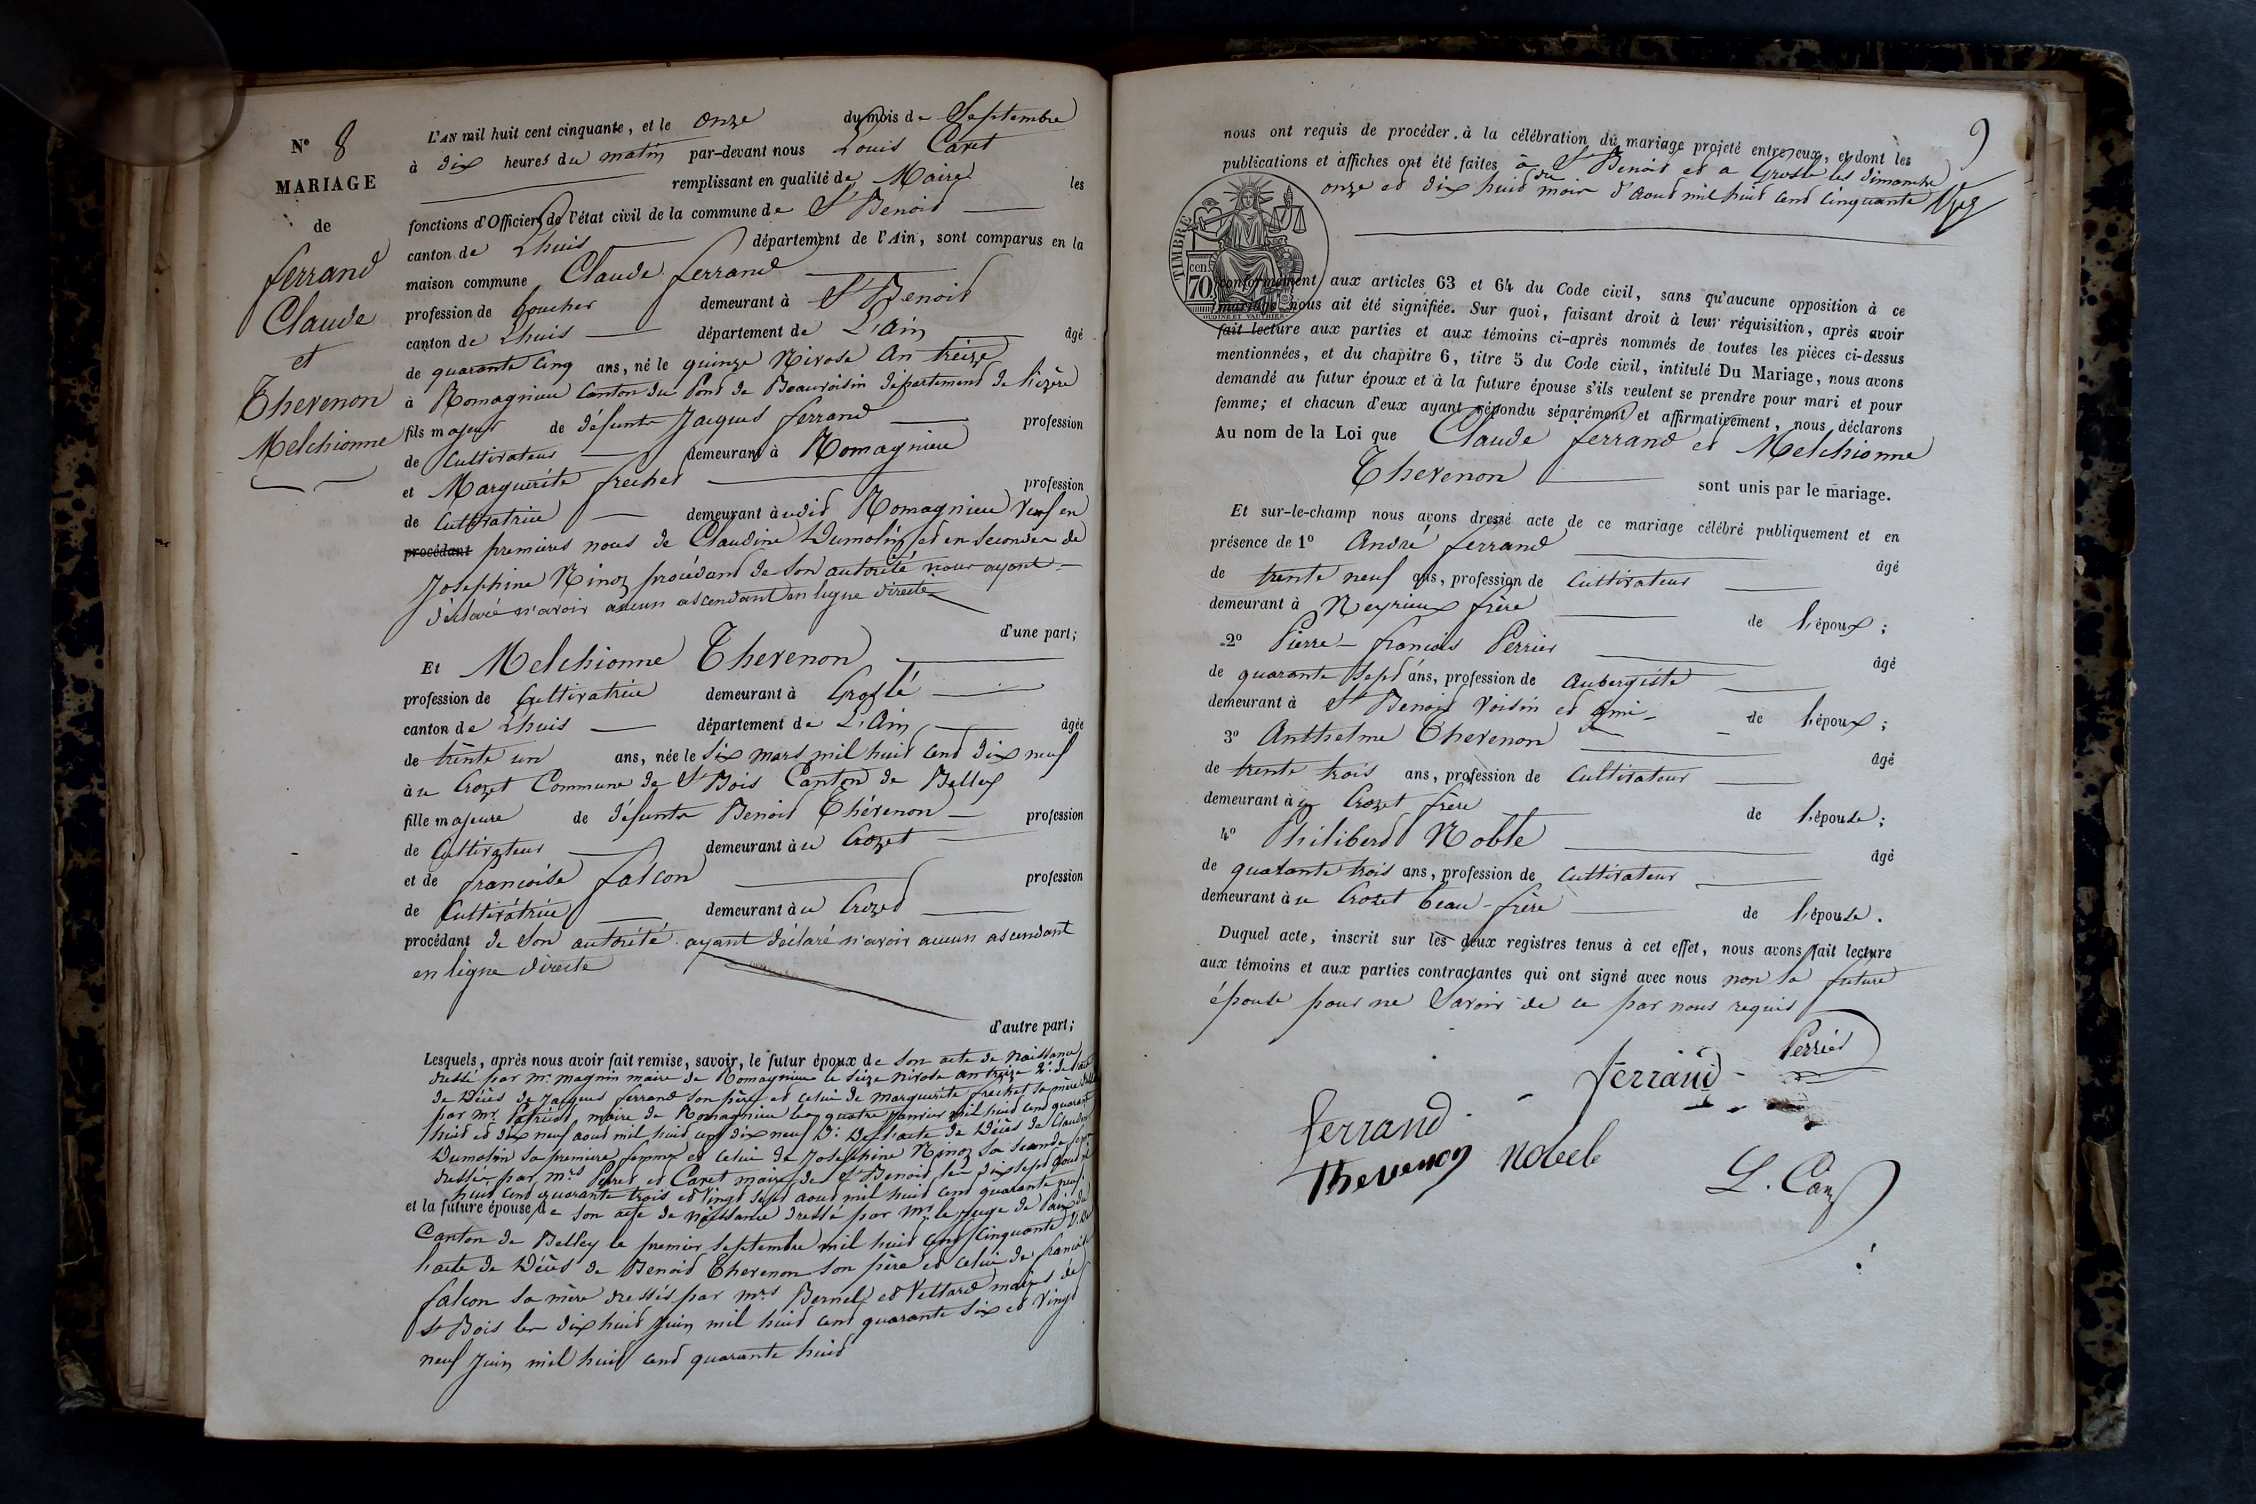 N° 8
MARIAGE
de
ferrand
Claude
et
Thevenon
Melchionne
L'AN mil huit cent cinquante, et le onze du mois de Septembre
à dix heures du matin par-devant nous Louis Caret
remplissant en qualité de Maire les
fonctions d'Officier de l'état civil de la commune de St Benoit
canton de Lhuis département de l'Ain, sont comparus en la
maison commune Claude ferrand
profession de boucher demeurant à St Benoit
canton de Lhuis département de L'Ain âgé
de quarante Cinq ans, né le quinze Nivose An treize
à Romagnieu Canton du Pont de Beauvoisin département de l'izère
fils majeur de défunts Jacques ferrand profession
de Cultivateur demeurant à Romagnieu
et Marguérite frechet profession
de Cultivatrice demeurant à udit Romagnieu Veuf en
procédant premières noces de Claudine Dumolin et en secondes de
Josephine Ninoz procédant de son autorité nous ayant
déclaré n'avoir aucun ascendant en ligne directe
d'une part;
Et Melchionne Thevenon
profession de Cultivatrice demeurant à Groslé
canton de Lhuis département de L'Ain âgée
de trente un ans, née le six mars mil huit cent dix neuf
à u Crozet Commune de St Bois Canton de Belley
fille majeure de défunts Benoit Thévenon profession
de Cultivateur demeurant à u Crozet
et de francoise falcon profession
de Cultivatrice demeurant à u Crozet
procédant de son autorité ayant déclaré n'avoir aucun ascendant
en ligne directe
d'autre part;
Lesquels, après nous avoir fait remise, savoir, le futur époux de son acte de naissance
dressé par mr. magnin maire de Romagnieu le seize nivose an treize 2° de l'acte
de décès de Jacques ferrand son père et celui de marguérite frechet sa mère
par mr. maire de Romagnieu les quatre Janvier mil huit cent quarante
huit et dix neuf aout mil huit cent dix neuf 3° de l'acte de décès de Claudine
Dumolin sa première femme et celui de Josephine Ninoz sa seconde
dressés par mrs Perret et Caret maires de St Benoit les dix sept aout mil
huit cent quarante trois et vingt sept aout mil huit cent quarante neuf.
et la future épouse de son acte de naissance dressé par Mr. le Juge de Paix du
Canton de Belley le premier septembre mil huit cent cinquante 2° de
l'acte de décès de Benoit Thevenon son père et celui de francoise
falcon sa mère dressés par mrs Bernel et Vettard maires de
St Bois les dix huit juin mil huit cent quarante six et vingt
neuf Juin mil huit cent quarante huit
9
nous ont requis de procéder à la célébration du mariage projeté entre eux, et dont les
publications et affiches ont été faites à St Benoit et a Groslé les dimanche
onze et dix huit du mois d'aout mil huit cent cinquante
TIMBRE
70 cen.
OUDINE ET VAUTHIER
conformément aux articles 63 et 64 du Code civil, sans qu'aucune opposition à ce
mariage nous ait été signifiée. Sur quoi, faisant droit à leur réquisition, après avoir
fait lecture aux parties et aux témoins ci-après nommés de toutes les pièces ci-dessus
mentionnées, et du chapitre 6, titre 5 du Code civil, intitulé Du Mariage, nous avons
demandé au futur époux et à la future épouse s'ils veulent se prendre pour mari et pour
femme; et chacun d'eux ayant répondu séparément et affirmativement, nous déclarons
Au nom de la Loi que Claude ferrand et Melchionne
Thevenon sont unis par le mariage.
Et sur-le-champ nous avons dressé acte de ce mariage célébré publiquement et en
présence de 1° André ferrand âgé
de trente neuf ans, profession de Cultivateur
demeurant à Neyrieux frère de l'époux;
2° Pierre-francois Perrier âgé
de quarante sept ans, profession de Aubergiste
demeurant à St Benoit Voisin et ami de l'époux;
3° Anthelme Thevenon âgé
de trente trois ans, profession de Cultivateur
demeurant à u Crozet frère de l'épouse;
4° Philibert Noble âgé
de quarante trois ans, profession de Cultivateur
demeurant à u Crozet beau-frère de l'épouse.
Duquel acte, inscrit sur les deux registres tenus à cet effet, nous avons fait lecture
aux témoins et aux parties contractantes qui ont signé avec nous non la future
épouse pour ne savoir de ce par nous requis
Perrier
ferrand
ferrand
Thevenon nobele
L. Caret